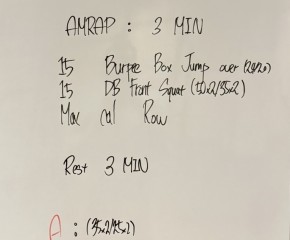 AMRAP : 3 MIN
15 Burpee Box Jump over (24/20)
15 DB Front Squat (50x2/35x2)
Max cal Row
Rest 3 MIN
A : (35x2/25x2)